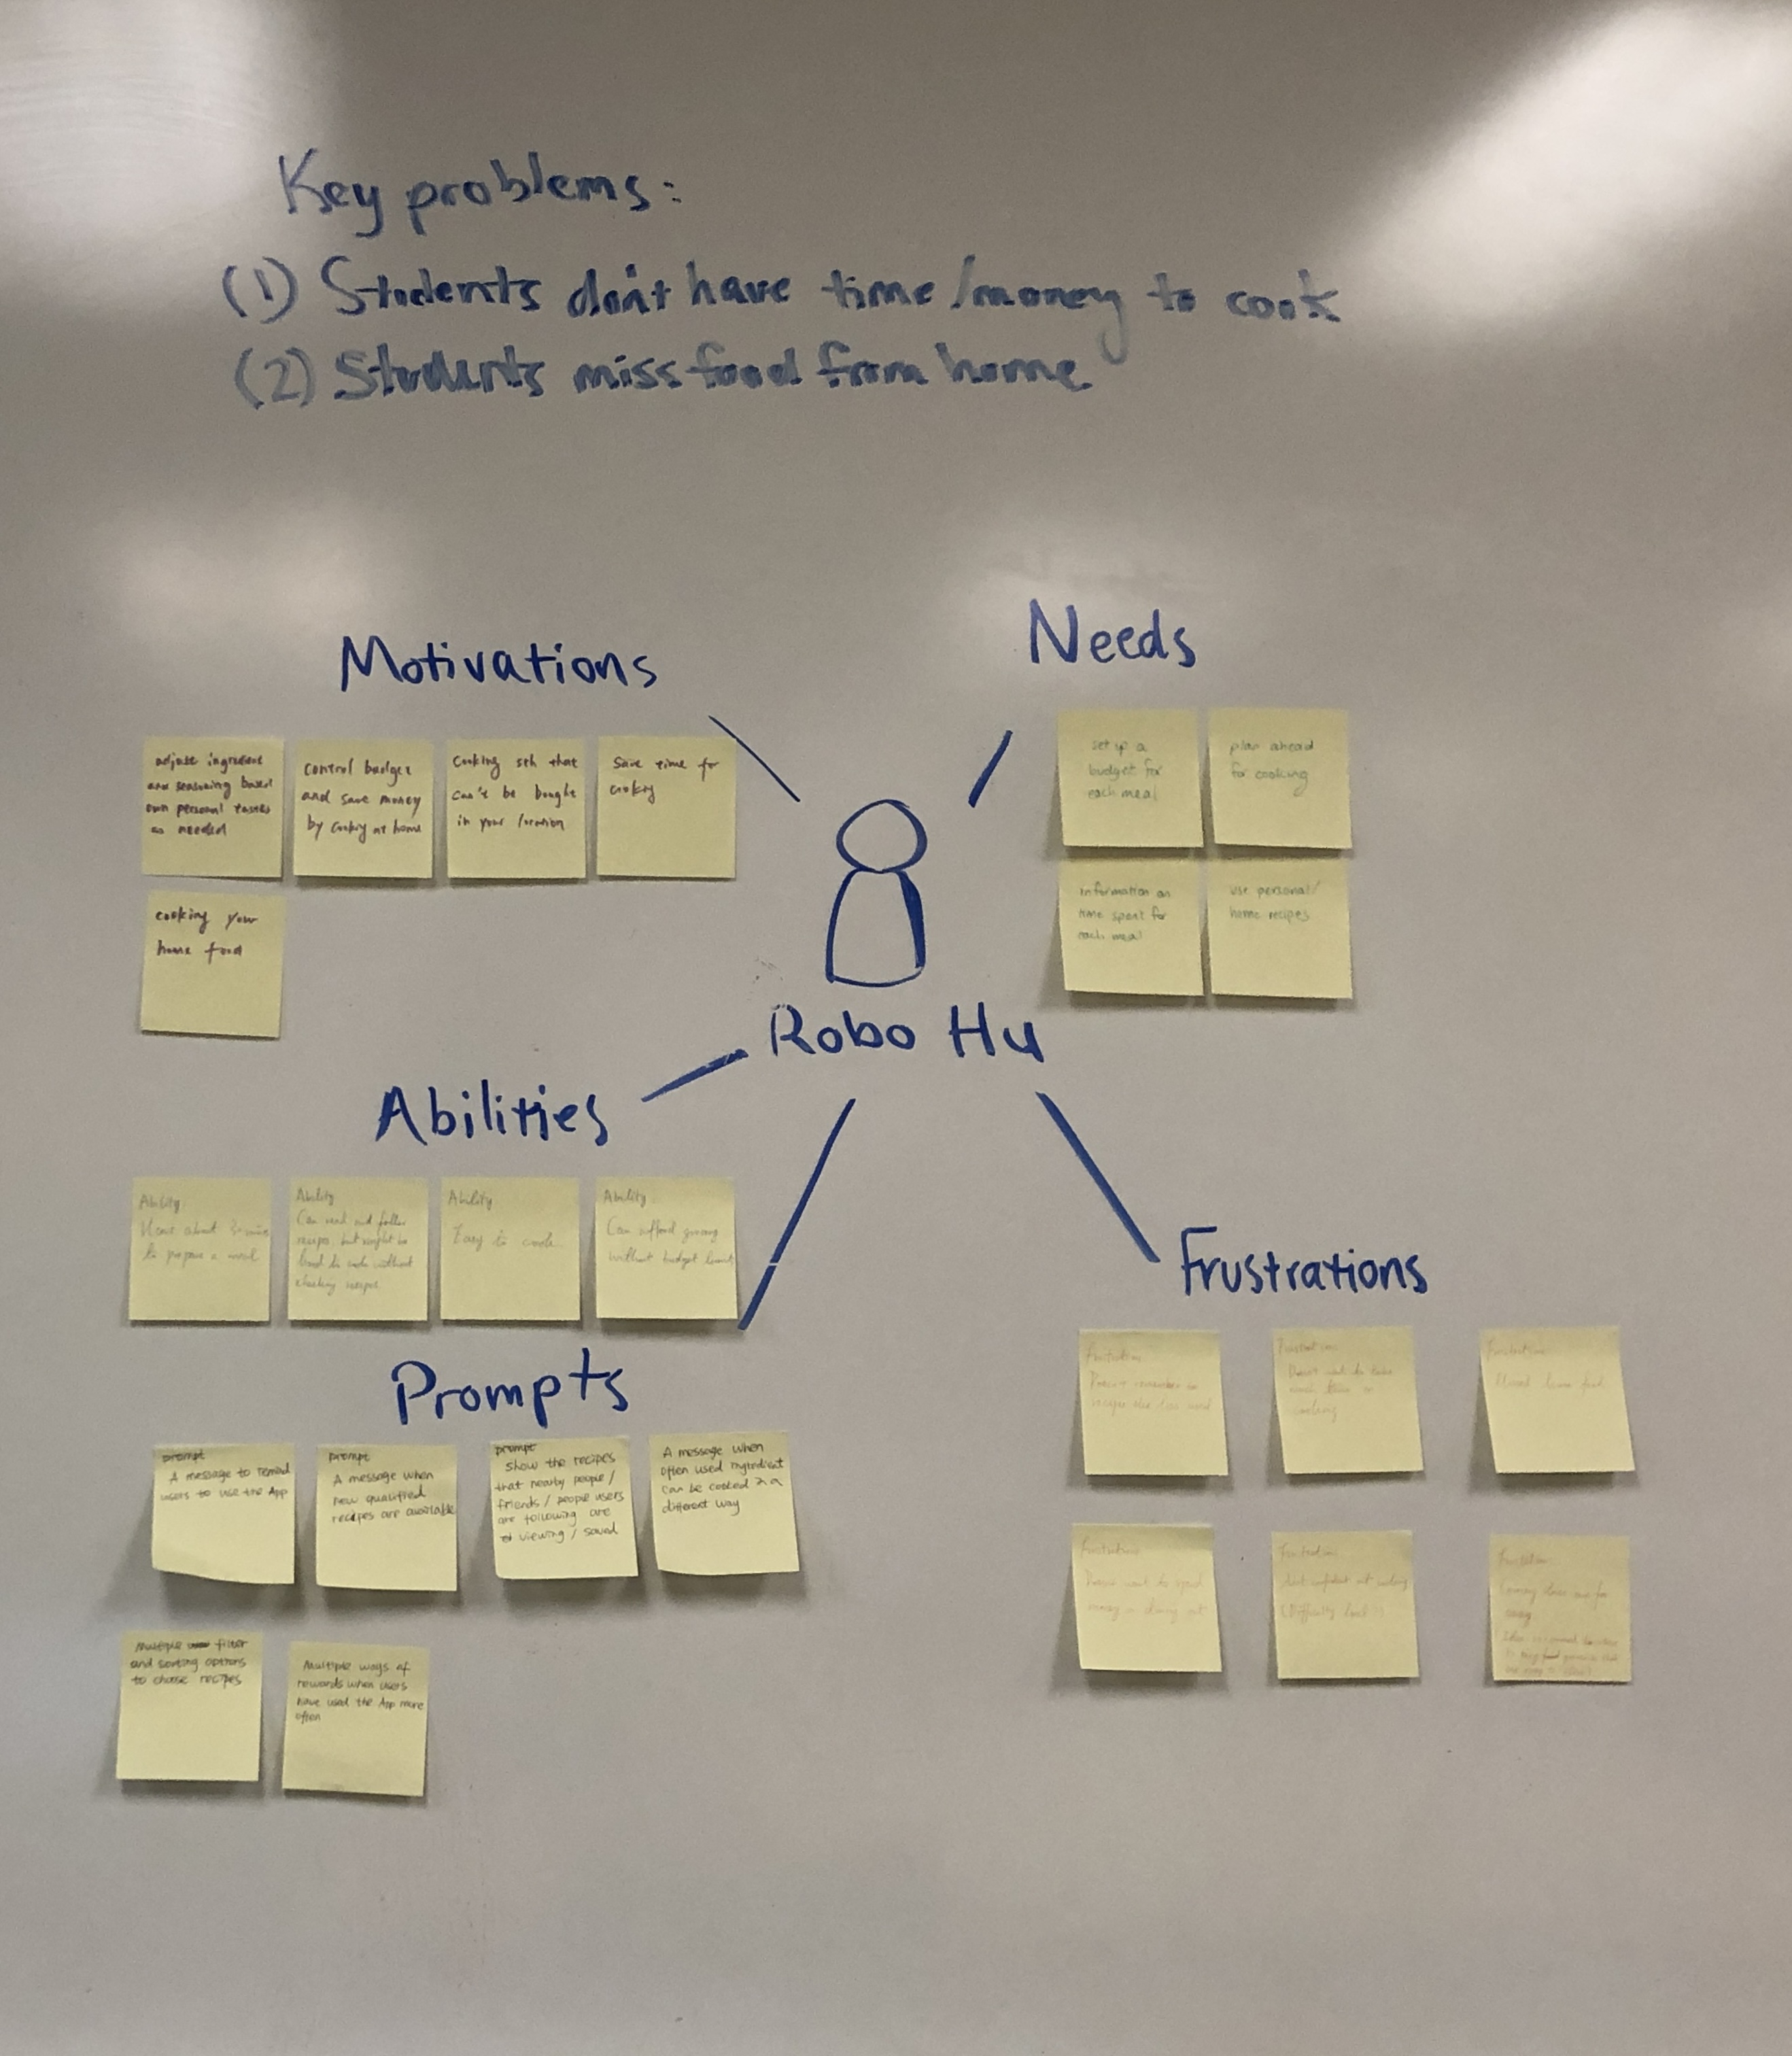 Key problems:
(1) Students don't have time/money to cook
(2) Students miss food from home
Motivations
adjust ingredient
and seasoning based
own personal tastes
as needed
control budget
and save money
by cooking at home
Cooking sth that
can't be bought
in your location
save time for
cooking
cooking your
home food
Needs
set up a
budget for
each meal
plan ahead
for cooking
information on
time spent for
each meal
use personal/
home recipes
Robo Hu
Abilities
Ability
to prepare a meal
Ability
Can read and follow
recipes, but might be
hard to cook without
checking recipes
Ability
Easy to cook
Ability
Can afford grocery
without budget limit
Prompts
prompt
A message to remind
users to use the App
prompt
A message when
new qualified
recipes are available
prompt
Show the recipes
that nearby people/
friends/people users
are following are
viewing/saved
A message when
often used ingredient
can be cooked in a
different way
Multiple filter
and sorting options
to choose recipes
Multiple ways of
rewards when users
have used the App more
often
Frustrations
Frustration:
Doesn't remember
Frustration:
Doesn't want to take
much time
cooking
Frustration:
home food
Frustration:
Doesn't want to spend
money dining out
Frustration:
Not confident at cooking
Frustration: